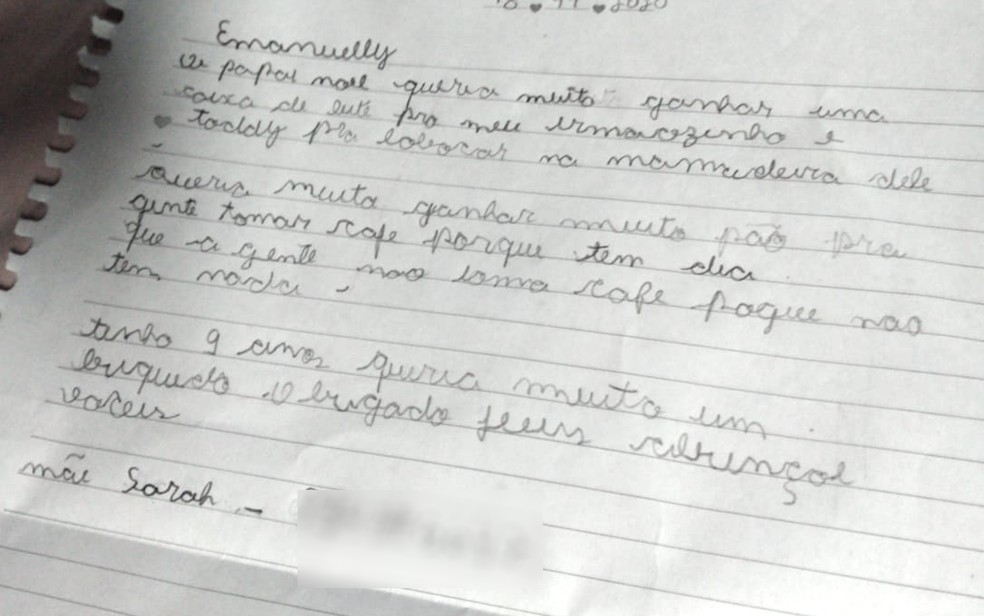 Emanuelly
papai noel queria muito ganhar uma
caixa de leite pro meu irmaozinho e
♥ toddy pra colocar na mamadeira dele
Queria muito ganhar muito pão pra
gente tomar cafe porque tem dia
que a gente nao toma cafe poque nao
tem nada,
tenho 9 anos queria muito um
briquedo obrigado jeus abençoe
voceis
mãe Sarah -